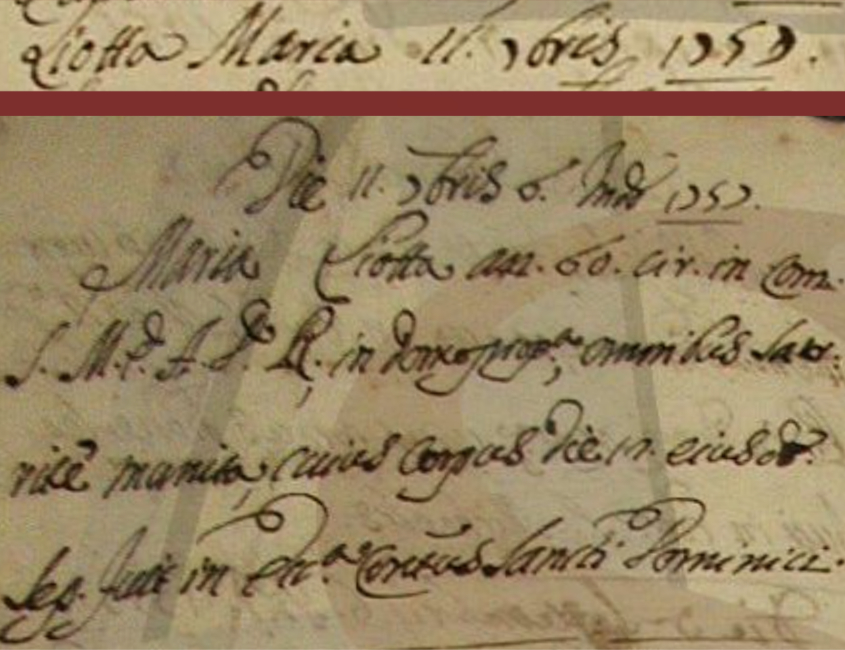 Liotta Maria 11. 7bris 1757.
Die 11. 7bris 6. Ind 1757.
Maria Liotta an. 60. cir. in Com.
S. M. e. A. D. R. in domo propa, omnibus Sacr.
rite munita, cuius corpus die 12. eiusd.
Sep. fuit in Eccla Contus Sancti Dominici.